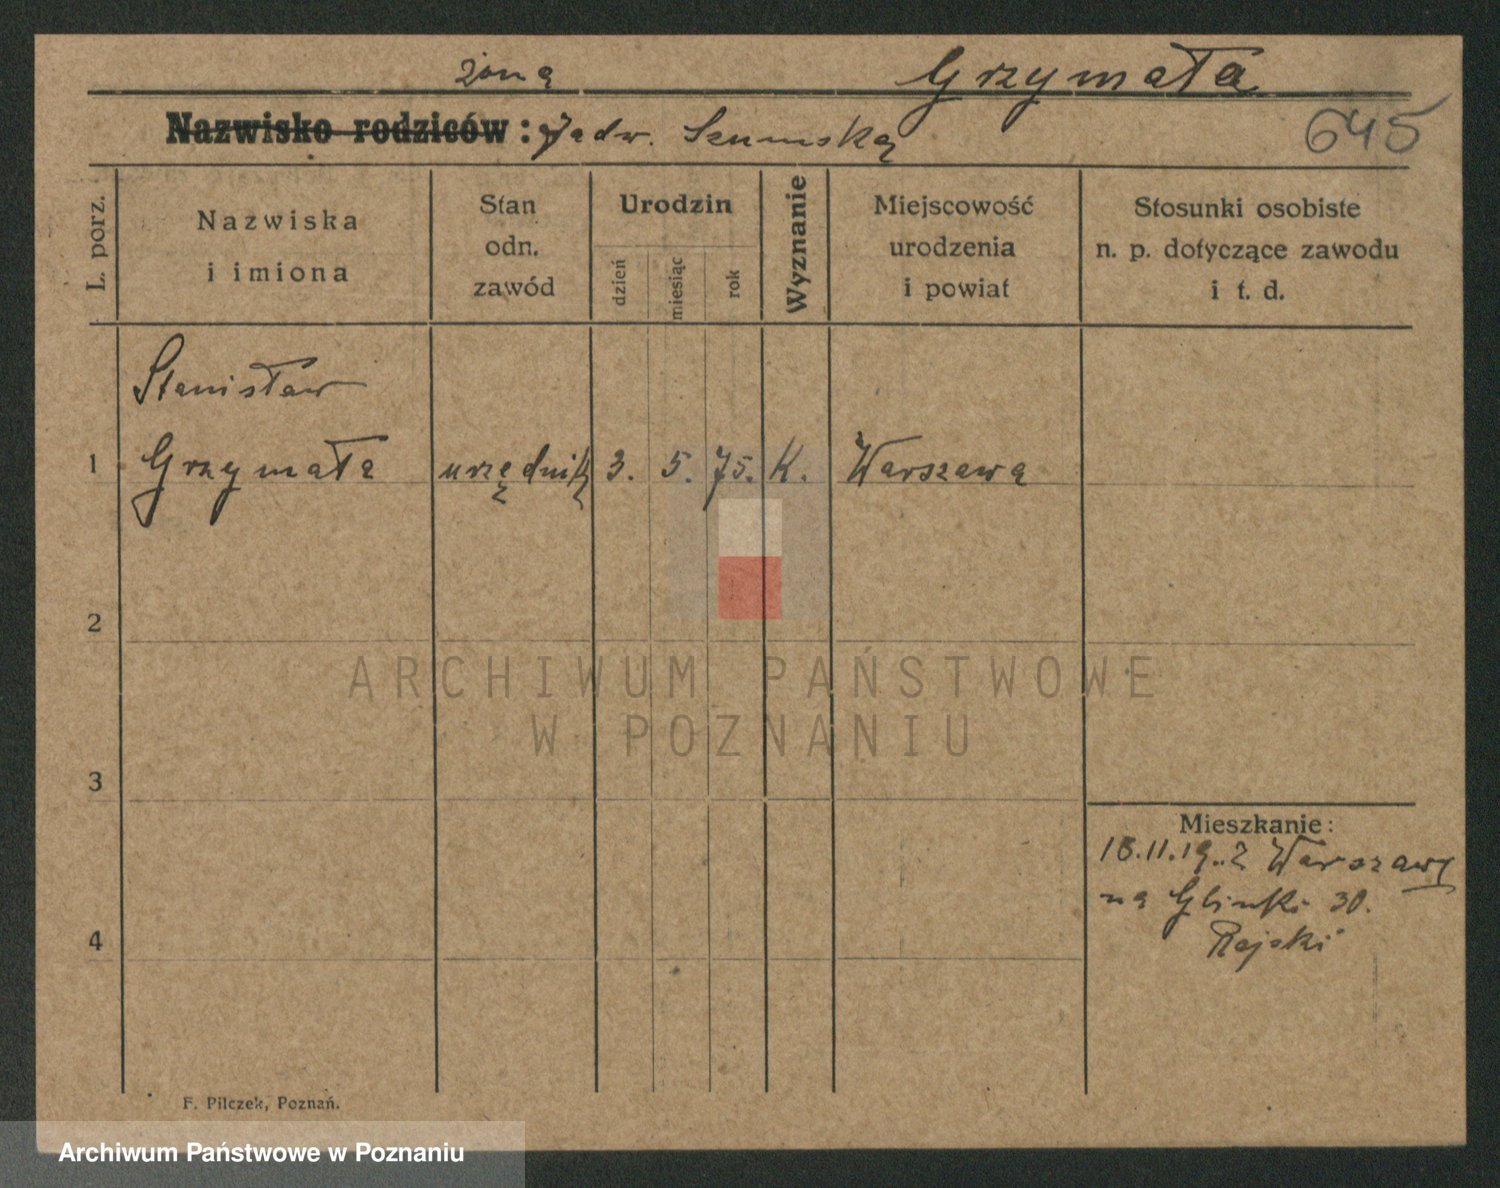 żona
Grzymała
645
Nazwisko rodziców: Jadw. Szumska
L. porz.
Nazwiska
i imiona
Stan
odn.
zawód
Urodzin
dzień
miesiąc
rok
Wyznanie
Miejscowość
urodzenia
i powiat
Stosunki osobiste
n. p. dotyczące zawodu
i t. d.
Stanisław
1 Grzymała urzędnik 3. 5. 75. K. Warszawa
2
3
4
Mieszkanie:
Warszawy
na Glinki 30.
Rajski
F. Pilczek, Poznań.
ARCHIWUM PAŃSTWOWE
W POZNANIU
Archiwum Państwowe w Poznaniu